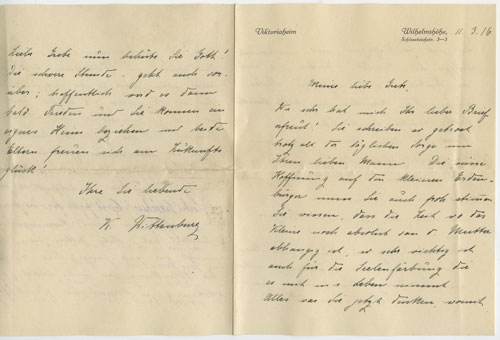 Liebe Grete nun behüte Sie Gott!
Die schwere Stunde - geht auch vor-
über; hoffentlich wird es dann
bald Frieden und Sie können ein
eignes Heim beziehen und beide
Eltern freuen sich am Zukunfts
glück!
Ihre Sie liebende
K. Wittenburg
Viktoriaheim
Wilhelmshöhe, 11.3.16
Meine liebe Grete.
Wie sehr hat mich Ihr lieber Brief
erfreut! Sie schreiben so getrost
trotz all der täglichen Sorge um
Ihren lieben Mann. Die süsse
Hoffnung auf den kleinen Erden-
bürger muss Sie auch froh stimmen
Sie wissen, dass die Zeit wo das
Kleine noch absolut von d. Mutter
abhängig ist, so wichtig ist
auch für die Seelenfärbung die
es mit in's Leben nimmt
Alles was Sie jetzt denken, womit